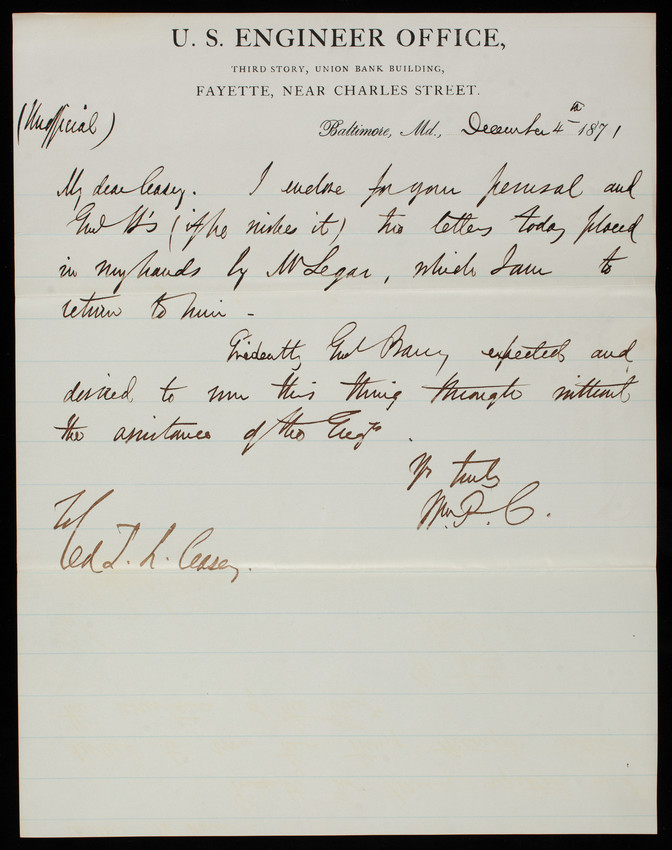 U. S. ENGINEER OFFICE,
THIRD STORY, UNION BANK BUILDING,
FAYETTE, NEAR CHARLES STREET.
(Unofficial)
Baltimore, Md., December 4th 1871
My dear Casey. I enclose for your perusal and
Genl H's (if he wishes it) two letters today placed
in my hands by Mr Legar, which I am to
return to him -
Evidently Genl Barry expected and
desired to run this thing through without
the assistance of the Engrs.
Yr truly
Wm. P. C.
To
Col T. L. Casey.